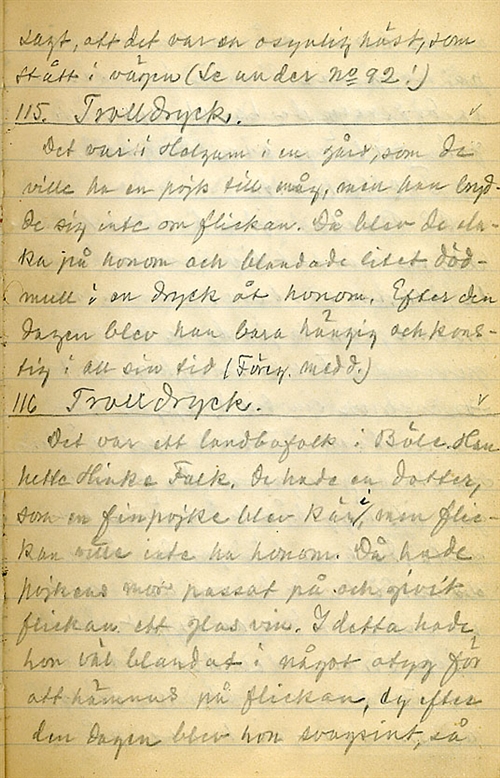 sagt, att det var en osynlig häst, som
stått i vägen (Se under No 92!)
115. Trolldryck.
Det var i Holgum i en gård, som de
ville ha en pojk till måg, men han bryd-
de sig inte om flickan. Då blev de ela-
ka på honom och blandade litet död-
mull i en dryck åt honom. Efter den
dagen blev han bara hängig och kons-
tig i all sin tid (Föreg. medd.)
116 Trolldryck.
Det var ett landbofolk i Böle. Han
hette Hinke Falk. De hade en dotter,
som en finpojke blev kär i, men flic-
kan ville inte ha honom. Då hade
pojkens mor passat på och givit
flickan ett glas vin. I detta hade
hon väl blandat i något otyg för
att hämnas på flickan, ty efter
den dagen blev hon svagsint, så